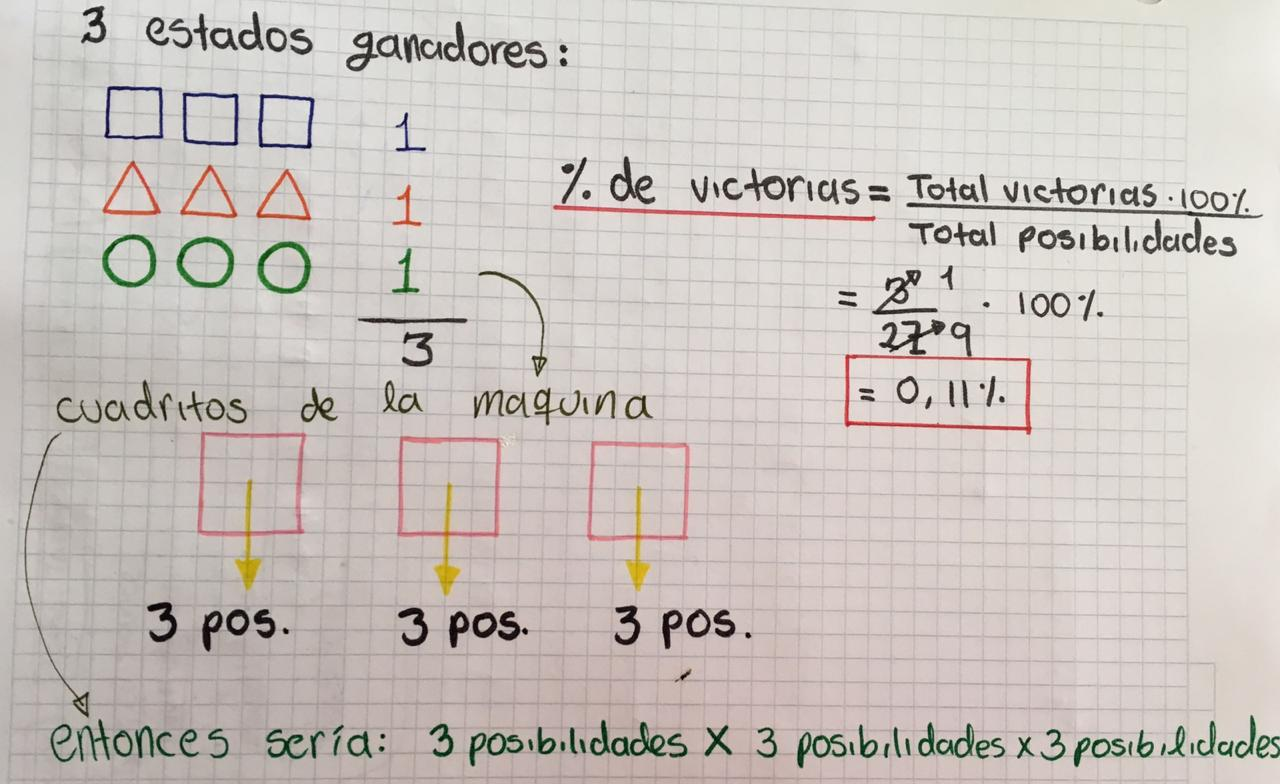 3 estados ganadores:
1
1
1
3
% de victorias = Total victorias · 100%
Total posibilidades
= 3 1 · 100%
27 9
= 0,11%
cuadritos de la maquina
3 pos. 3 pos. 3 pos.
entonces sería: 3 posibilidades X 3 posibilidades x 3 posibilidades